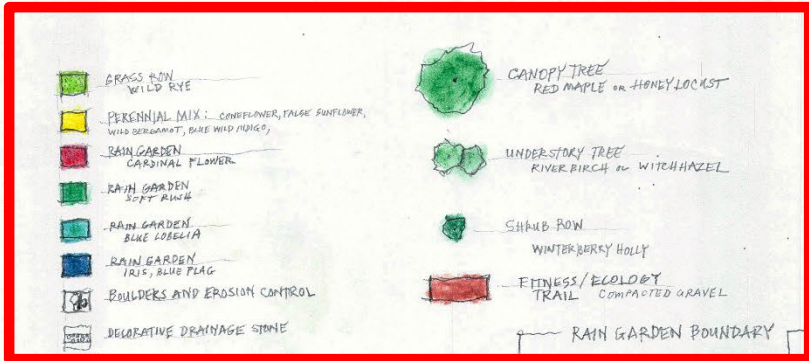 GRASS ROW
WILD RYE
PERENNIAL MIX: CONEFLOWER, FALSE SUNFLOWER,
WILD BERGAMOT, BLUE WILD INDIGO,
RAIN GARDEN
CARDINAL FLOWER
RAIN GARDEN
SOFT RUSH
RAIN GARDEN
BLUE LOBELIA
RAIN GARDEN
IRIS, BLUE FLAG
BOULDERS AND EROSION CONTROL
DECORATIVE DRAINAGE STONE
CANOPY TREE
RED MAPLE OR HONEY LOCUST
UNDERSTORY TREE
RIVER BIRCH OR WITCHHAZEL
SHRUB ROW
WINTERBERRY HOLLY
FITNESS/ECOLOGY
TRAIL COMPACTED GRAVEL
RAIN GARDEN BOUNDARY